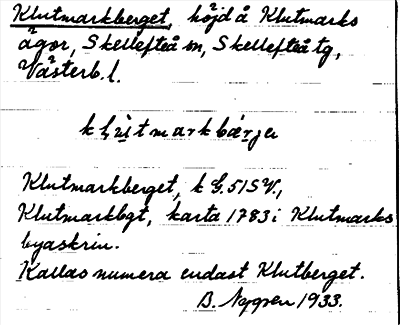 Klutmarkberget, höjd å Klutmarks
ägor, Skellefteå sn, Skellefteå tg,
Västerb. l.
Klutmarkberget, k G. 51 SV.,
Klutmarkbgt, karta 1783 i Klutmarks
byaskrin.
Kallas numera endast Klutberget.
B. Nygren 1933.